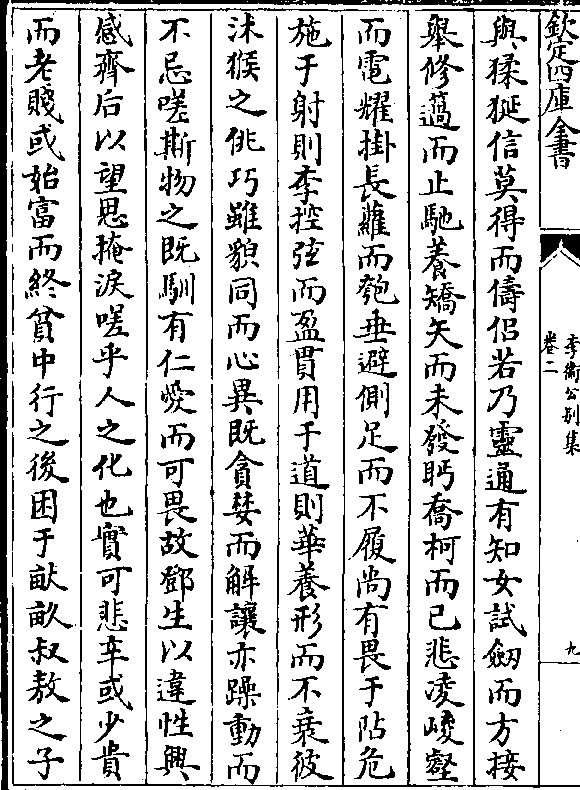 欽定四庫全書
李衛公別集
卷二
九
與猱狿信莫得而儔侣若乃靈通有知女試劔而方接
舉修薖而止馳養矯矢而未發眄喬柯而已悲凌峻壑
而電耀掛長蘿而匏垂避側足而不履尚有畏于阽危
施于射則李控弦而盈貫用于道則華養形而不衰彼
沐猴之佻巧雖貌同而心異既貪婪而解讓亦躁動而
不忌嗟斯物之既馴有仁愛而可畏故鄧生以違性興
感齊后以望思掩淚嗟乎人之化也實可悲辛或少貴
而老賤或始富而終貧中行之後困于畎畝叔敖之子